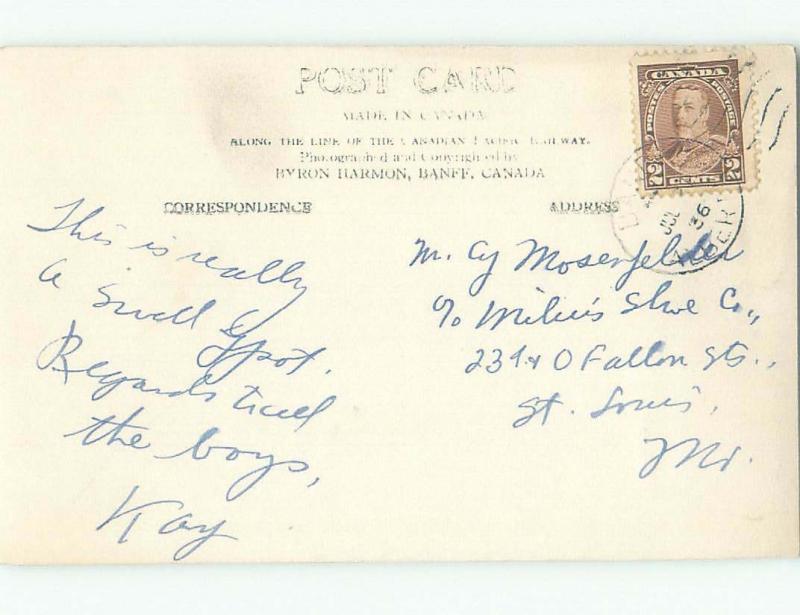 POST CARD
MADE IN CANADA
ALONG THE LINE OF THE CANADIAN PACIFIC RAILWAY.
Photographed and Copyrighted by
BYRON HARMON, BANFF, CANADA
CORRESPONDENCE
ADDRESS
CANADA
POSTES POSTAGE
2 CENTS 2
JUL
36
This is really
a swell spot.
Regards to all
the boys,
Kay
Mr. Cy Mosenfelder
c/o Milius Shoe Co.,
23rd & O Fallon Sts.,
St. Louis,
Mo.